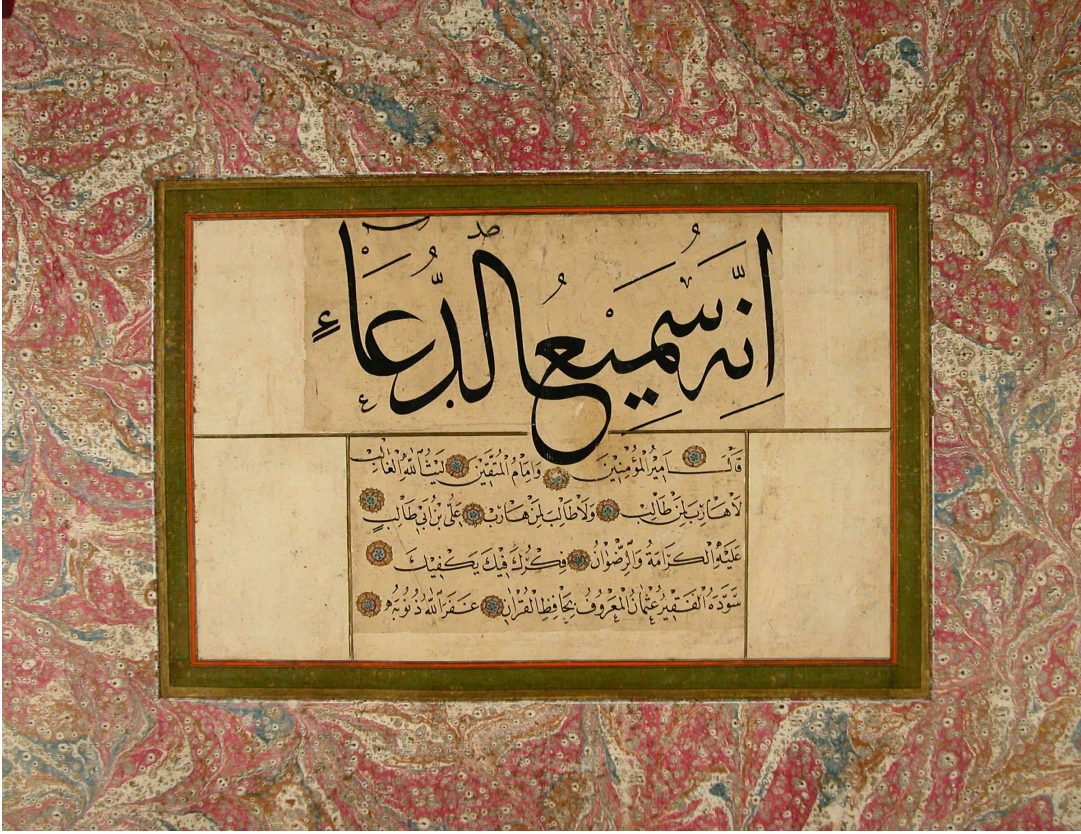 اِنَّهُ سَمِيْعُ الدُّعَاءِ
قَالَ اَمِيْرُ الْمُؤْمِنِيْنَ وَاِمَامُ الْمُتَّقِيْنَ لَيْثُ اللّٰهِ الْغَالِبِ
لَاهَارِبَ لِمَنْ طَالِبٌ وَلَا طَالِبَ لِمَنْ هَارِبٌ عَلِىُّ بْنُ اَبِى طَالِبٍ
عَلَيْهِ الْكَرَامَةُ وَالرِّضْوَانُ فِكْرُكَ فِيْكَ يَكْفِيْكَ
سَوَّدَهُ الْفَقِيْرُ عُثْمَانُ الْمَعْرُوفُ بِحَافِظِ الْقُرْاٰنِ غَفَرَ اللّٰهُ ذُنُوبَهُ